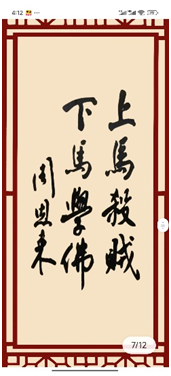 4:12
上馬殺賊
下馬學佛
周恩来
7/12